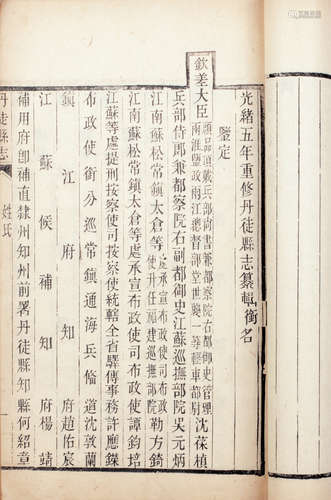 光緒五年重修丹徒縣志纂輯銜名
鑒定
欽差大臣
頭品頂戴兵部尚書兼都察院右都御史管理
兩淮鹽政兩江總督部堂世襲一等輕車都尉
沈葆楨
兵部侍郎兼都察院右副都御史江蘇巡撫部院吳元炳
江南江蘇松常鎮太倉等
處承宣布政使司布政
使升任福建巡撫部院
勒方錡
江南江蘇松常鎮太倉等處承宣布政使司布政使譚鈞培
江蘇等處提刑按察使司按察使統轄全省驛傳事務許應鑅
布政使銜分巡常鎮通海兵備道沈敦蘭
鎮江府知府趙佑宸
江蘇候補知府楊靖
補用府即補直隸州知州前署丹徒縣知縣何紹章
丹徒縣志
姓氏